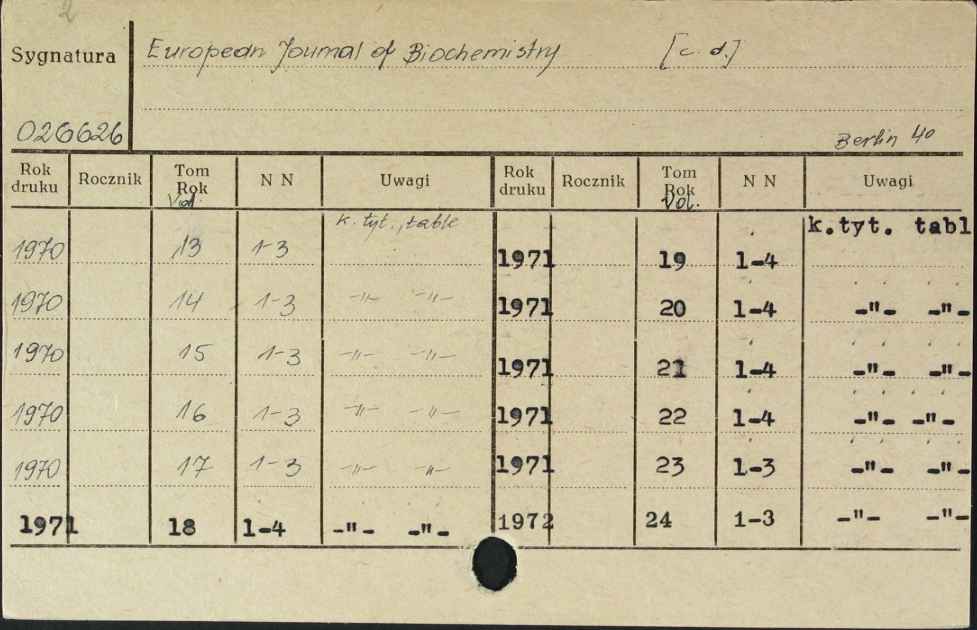 2
Sygnatura
European Journal of Biochemistry [c. d.]
026626
Berlin 4º
Rok druku Rocznik Tom Rok N N Uwagi Rok druku Rocznik Tom Rok N N Uwagi
Vol. Vol.
k. tyt., table k.tyt. tabl
1970 13 1-3 1971 19 1-4
1970 14 1-3 -"- -"- 1971 20 1-4 -"- -"-
1970 15 1-3 -"- -"- 1971 21 1-4 -"- -"-
1970 16 1-3 -"- -"- 1971 22 1-4 -"- -"-
1970 17 1-3 -"- -"- 1971 23 1-3 -"- -"-
1971 18 1-4 -"- -"- 1972 24 1-3 -"- -"-